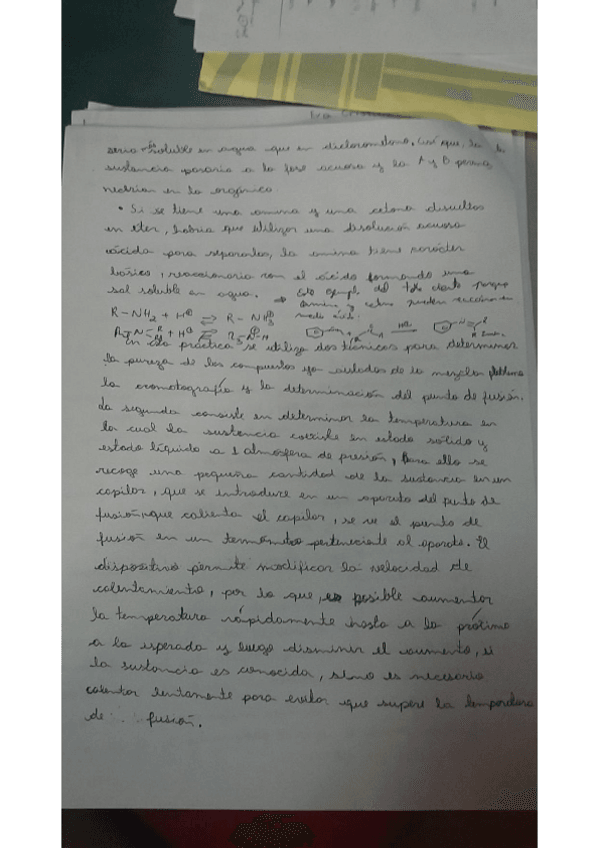 seria + soluble en agua que en diclorometano. Así que, la
sustancia pasaría a la fase acuosa y la A y B perma
necerían en la orgánica.
• Si se tiene una amina y una cetona disueltas
en éter, habría que utilizar una disolución acuosa
ácida para separarlas, la amina tiene carácter
básico, reaccionaría con el ácido formando una
sal soluble en agua. ⇒ Este ejemplo del todo cierto porque
amina y cetona pueden reaccionar en
medio ácido:
R-NH2 + H⊕ ⇌ R-NH3⊕
En esta práctica se utiliza dos técnicas para determinar
la pureza de los compuestos ya aislados de la mezcla problema
la cromatografía y la determinación del punto de fusión.
La segunda consiste en determinar la temperatura en
la cual la sustancia coexiste en estado sólido y
estado líquido a 1 atmósfera de presión, para ello se
recoge una pequeña cantidad de la sustancia en un
capilar, que se introduce en un aparato del punto de
fusión que calienta el capilar, se ve el punto de
fusión en un termómetro perteneciente al aparato. El
dispositivo permite modificar la velocidad de
calentamiento, por lo que, es posible aumentar
la temperatura rápidamente hasta a la próximo
a la esperada y luego disminuir el aumento, si
la sustancia es conocida, sino es necesario
calentar lentamente para evitar que supere la temperatura
de fusión.